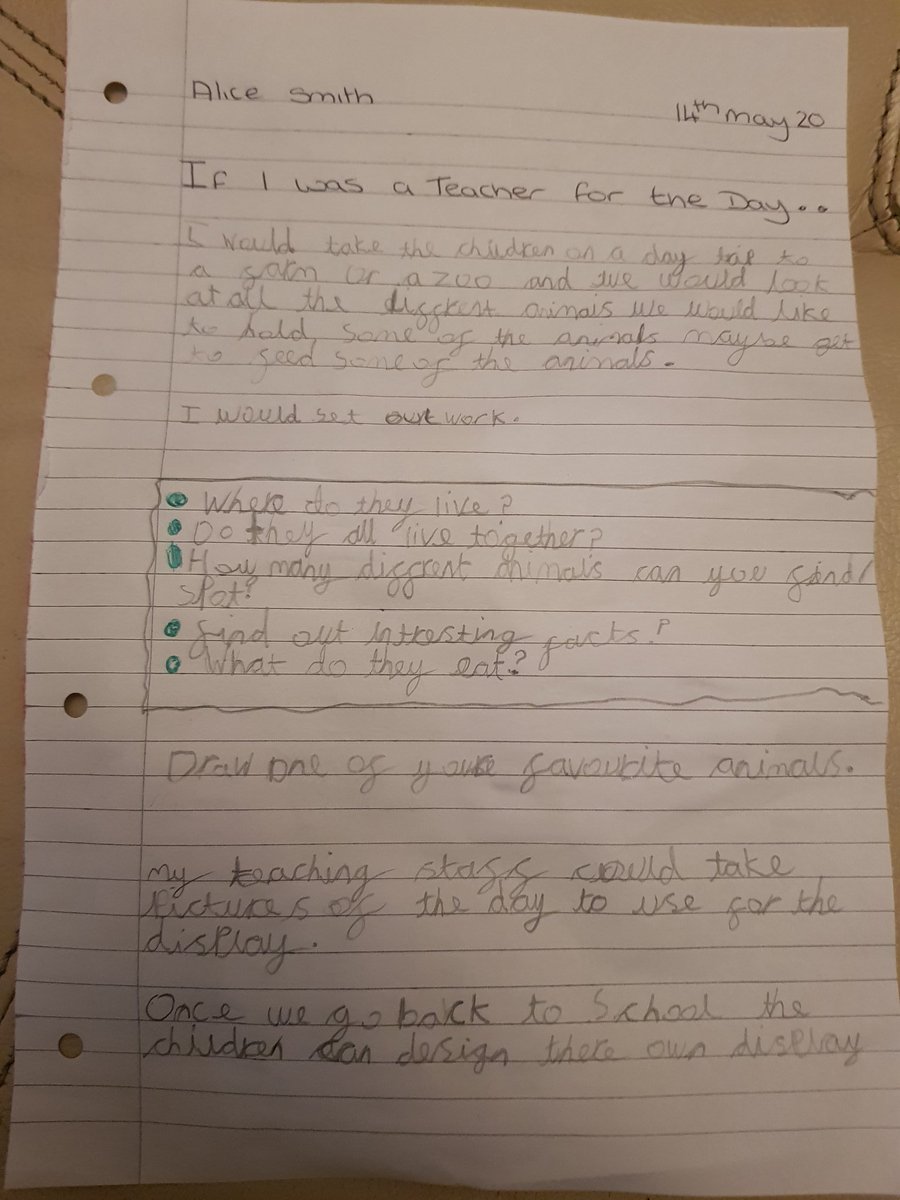 Alice Smith
14th May 20
If I was a Teacher for the Day..
I would take the children on a day trip to
a farm or a zoo and we would look
at all the diffrent animals we would like
to hold some of the animals maybe get
to feed some of the animals.
I would set out work.
• Where do they live?
• Do they all live together?
• How many diffrent animals can you find/
spot?
• find out intresting facts?
• What do they eat?
Draw one of your favourite animals.
my teaching staff could take
pictures of the day to use for the
display.
Once we go back to School the
children can design there own display